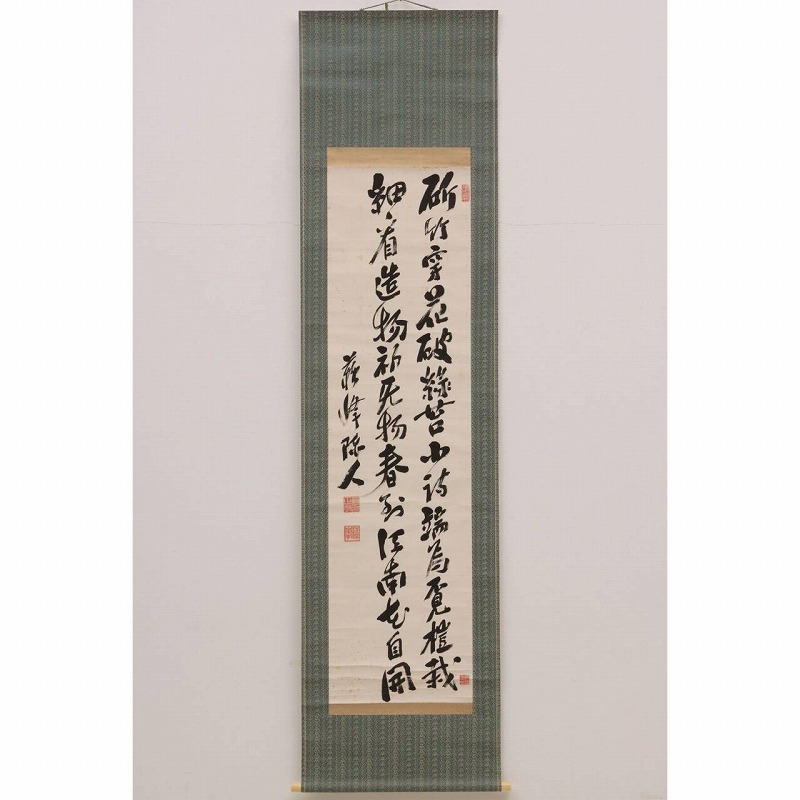 斫竹穿花破綠苔小詩端為覓榿栽
細看造物初无物春到江南花自開
蘇峰陳人